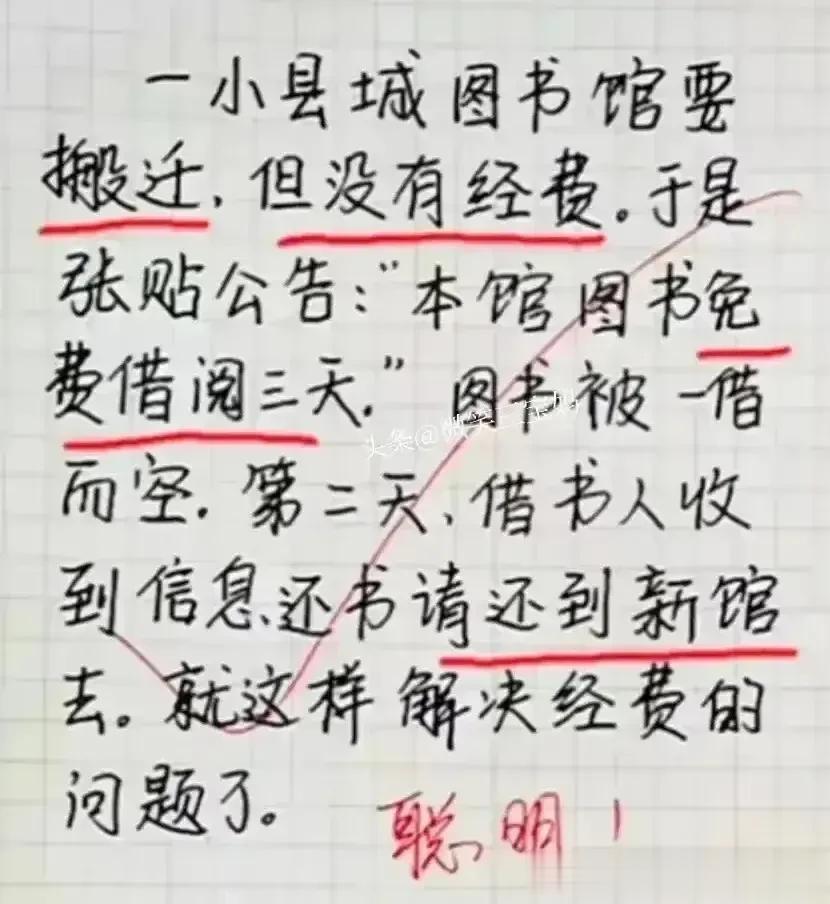 一小县城图书馆要
搬迁，但没有经费。于是
张贴公告：“本馆图书免
费借阅三天。”图书被一借
头条@微笑三宝妈
而空。第二天、借书人收
到信息还书请还到新馆
去。就这样解决经费的
问题了。
聪明！